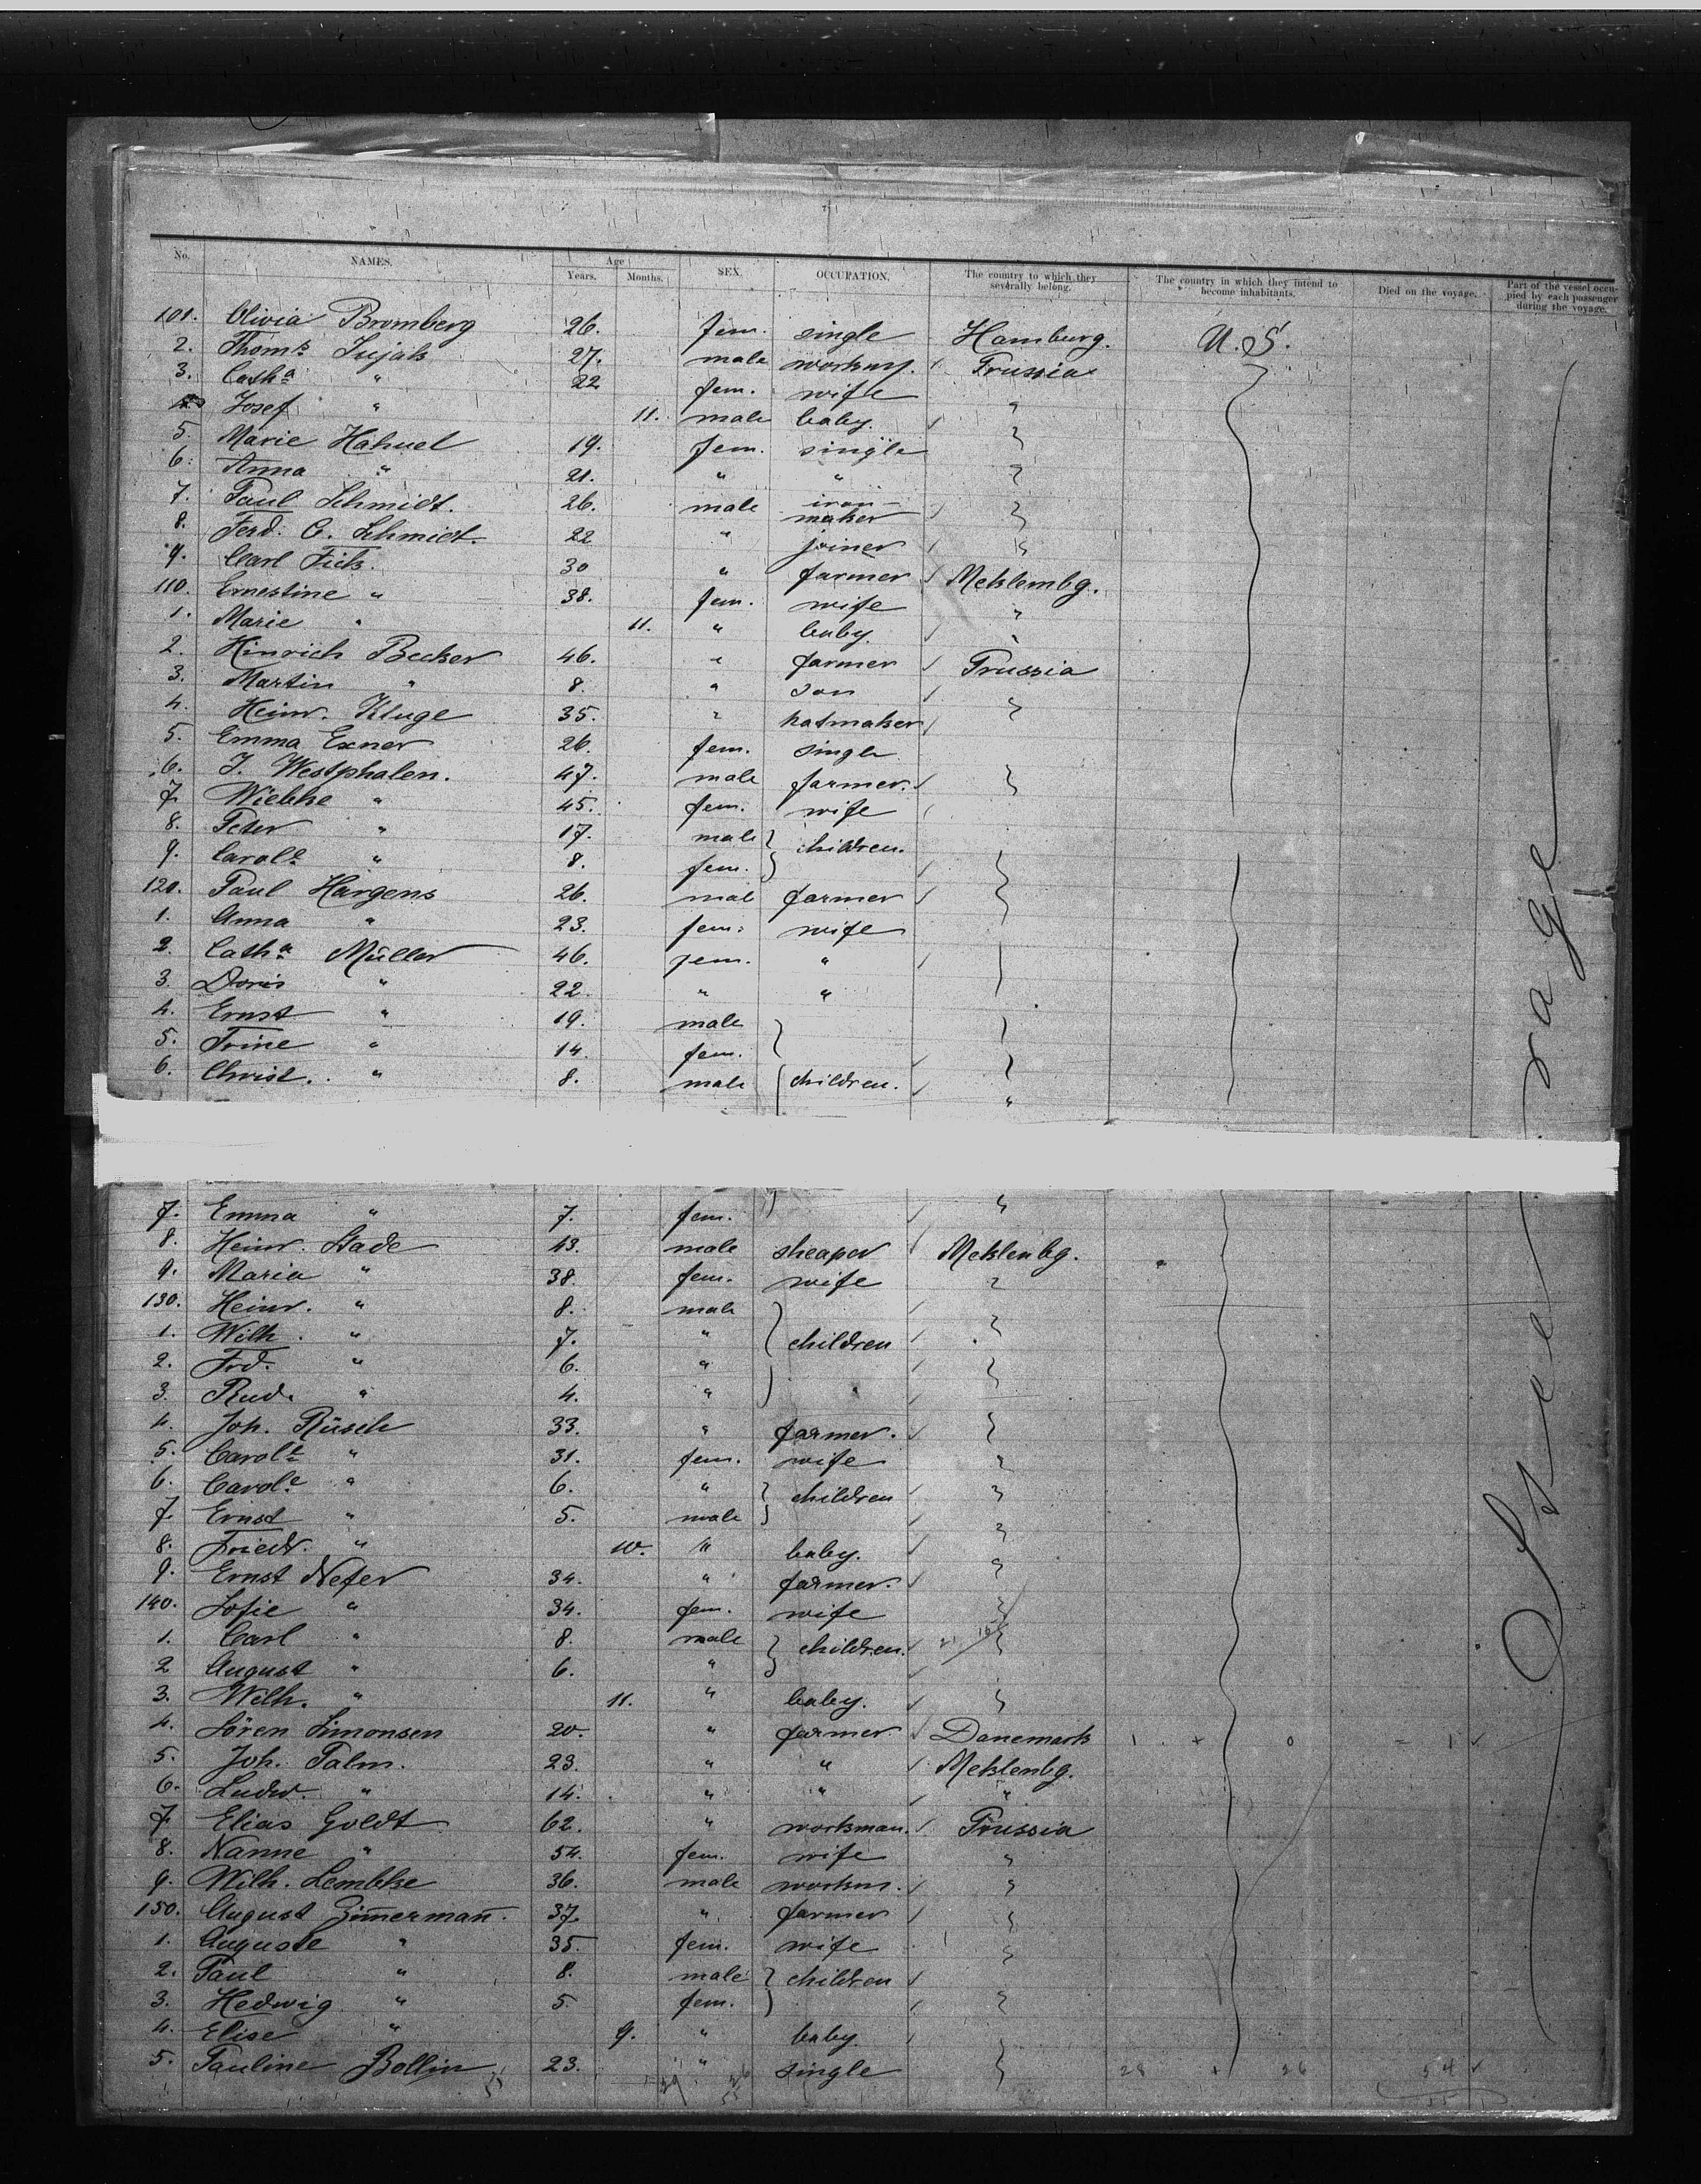 No. NAMES. Age Years. Months. SEX. OCCUPATION. The country to which they severally belong. The country in which they intend to become inhabitants. Died on the voyage. Part of the vessel occupied by each passenger during the voyage.
101. Olivia Bromberg 26. fem. single Hamburg. U.S.
2. Thoms Jujak 27. male workm. Prussia
3. Catha " 22 fem. wife "
Josef " 11. male baby.
5. Marie Hahuel 19. fem. single
6. Anna " 21. " " "
7. Paul Schmidt. 26. male iron-maker
8. Ferd. C. Schmidt. 22 " joiner
9. Carl Fick. 30 " farmer Meklembg.
110. Ernestine " 38. fem. wife "
1. Marie " 11. " baby. "
2. Hinrich Becker 46. " farmer Prussia
3. Martin " 8. " son
4. Heinr. Kluge 35. " hatmaker
5. Emma Exner 26. fem. single
6. J. Westphalen. 47. male farmer.
7. Wiebke " 45. fem. wife
8. Peter " 17. male children.
9. Carole " 8. fem.
120. Paul Hargens 26. male farmer
1. Anna " 23. fem. wife
2. Catha Müller 46. fem. "
3. Doris " 22. " "
4. Ernst " 19. male
5. Trine " 14. fem.
6. Christ. " 8. male children. "
7. Emma " 7. fem. "
8. Heinr. Stade 43. male sheaper Meklenbg.
9. Maria " 38. fem. wife "
130. Heinr. " 8. male
1. Wilh. " 7. " children
2. Frd. " 6. "
3. Rud. " 4. " "
4. Joh. Rüsch 33. " farmer.
5. Carole " 31. fem. wife "
6. Carole " 6. " children "
7. Ernst " 5. male
8. Friedr. " 10. " baby. "
9. Ernst Nefer 34. " farmer. "
140. Sofie " 34. fem. wife
1. Carl " 8. male children.
2 August " 6. "
3. Wilh. " 11. " baby.
4. Sören Simonsen 20. " farmer Danemark 1 + 0 = 1
5. Joh. Palm. 23. " " Meklenbg.
6. Ludw. " 14. " " "
7. Elias Goldt 62. " workman. Prussia
8. Nanne " 54. fem. wife "
9. Wilh. Lembke 36. male workm. "
150. August Zim̄erman̄. 37. " farmer
1. Auguste " 35. fem. wife
2. Paul " 8. male children
3. Hedwig " 5. fem.
4. Elise " 9. " baby.
5. Pauline Bollin 23. " single 28 + 26 54
Steerage